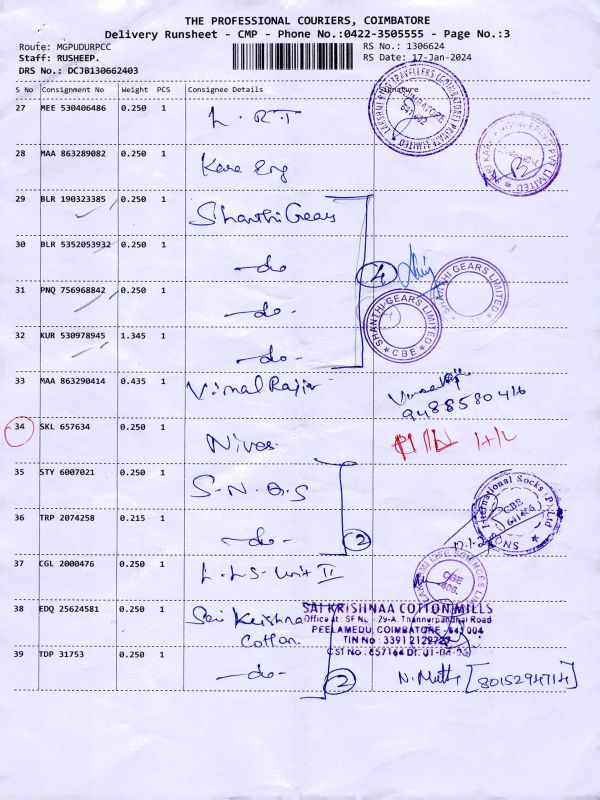 THE PROFESSIONAL COURIERS, COIMBATORE
Delivery Runsheet - CMP - Phone No.:0422-3505555 - Page No.:3
Route: MGPUDURPCC
RS No.: 1306624
Staff: RUSHEEP.
RS Date: 17-Jan-2024
DRS No.: DCJB130662403
S No Consignment No Weight PCS Consignee Details Signature
27 MEE 530406486 0.250 1 L.R.T
28 MAA 863289082 0.250 1 Kare Eng
29 BLR 190323385 0.250 1 Shanthi Gears
30 BLR 5352053932 0.250 1 -do
31 PNQ 756968842 0.250 1 -do- 4
SHANTHI GEARS LIMITED
SHANTHI GEARS LIMITED CBE
32 KUR 530978945 1.345 1 -do-
33 MAA 863290414 0.435 1 Vimal Rajiv
9488580416
34 SKL 657634 0.250 1 Nives
35 STY 6007021 0.250 1 S.N.Q.S
International Socks Pvt Ltd SNQS CBE
36 TRP 2074258 0.215 1 -do- 2
37 CGL 2000476 0.250 1 L.L.S- Unit II
LIFE SCIENCES CBE
38 EDQ 25624581 0.250 1 Sri Krishna Cotton
SAI KRISHNAA COTTON MILLS
Office at : SF No. : 29-A, Thanneerpandhal Road
PEELAMEDU, COIMBATORE - 641 004
TIN No : 3391
CST No : 657164 Dt.
39 TDP 31753 0.250 1 -do- 2 N. Muth [8015294714]